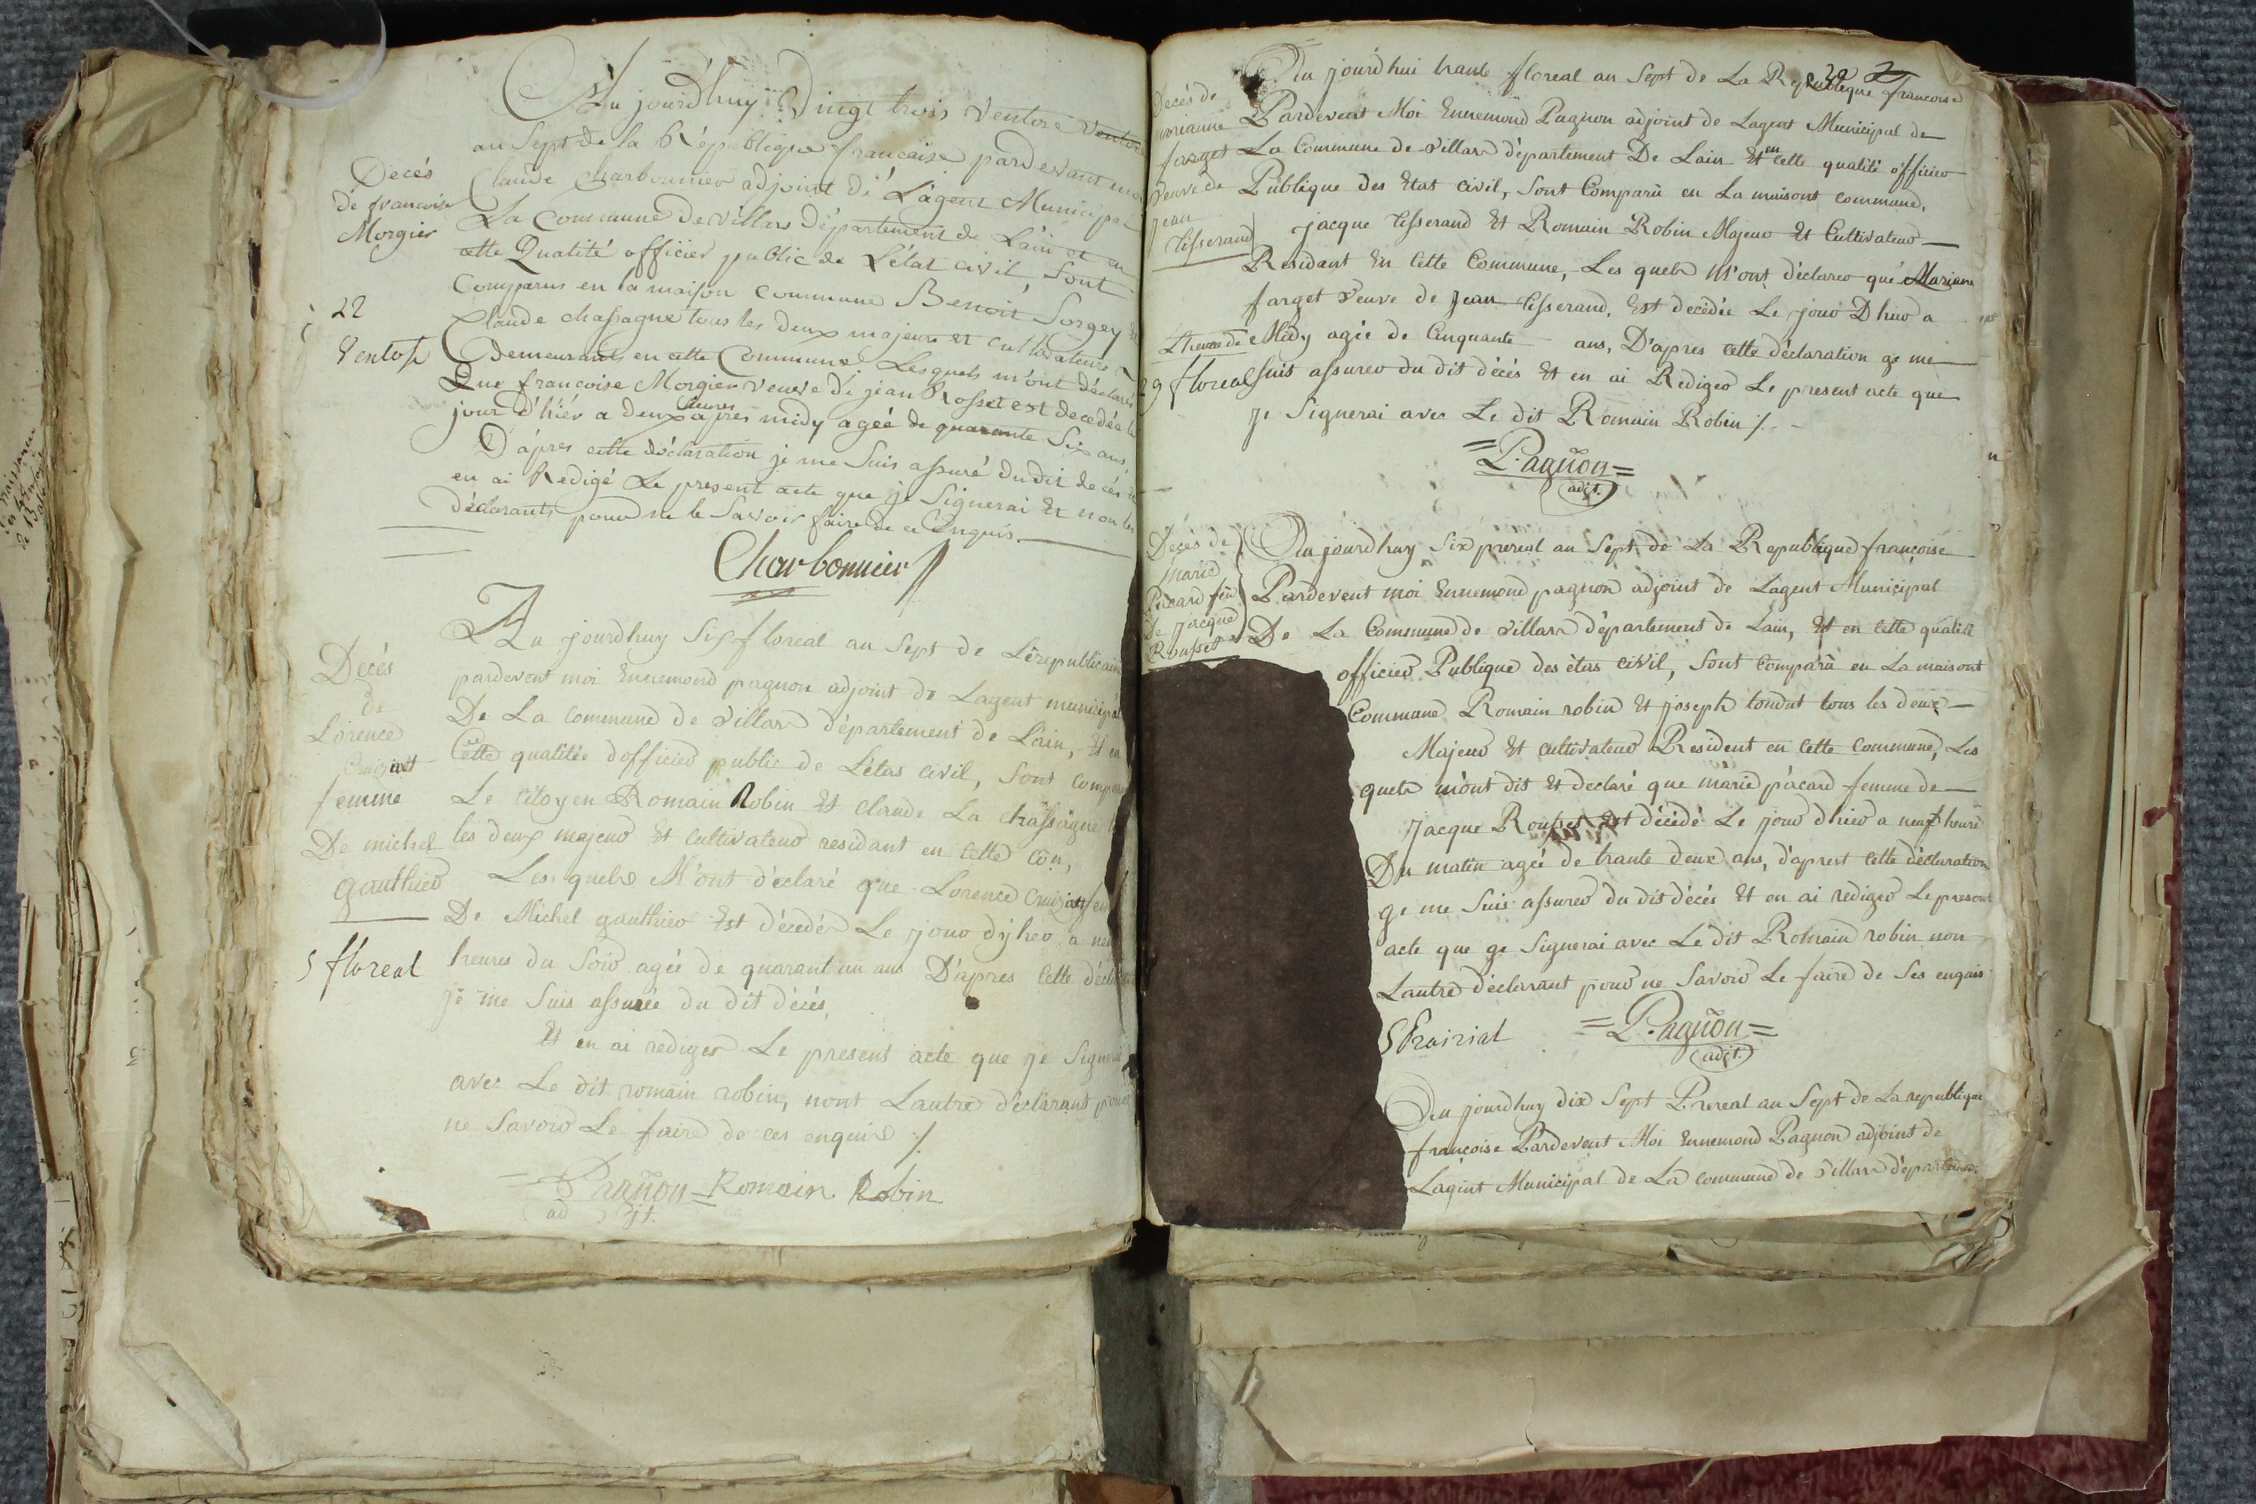 Décès
de francoise
Morgier
22
Ventose
Au jourd'huy Vingt trois Ventose
an Sept de la République francaise pardevant moi
Claude Charbonnier adjoint de L'agent Municipal
La Commune de villars département de L'ain et en
cette Qualité officier public de L'état civil, Sont
Comparus en la maison Commune Benoit Sorgey et
Claude chassagne tous les deux majeurs et cultivateurs
demeurants en cette Commune Lesquels m'ont déclaré
Que françoise Morgier veuve de jean Rosset est decedée le
jour d'hiér a deux heures apres midy agée de quarante Six ans,
D'apres cette déclaration je me Suis assuré du dit decés et
en ai Redigé Le present acte que je Signerai et non les
déclarants pour ne le Savoir faire de ce Enquis
Charbonnier
Décès
de
Lorence
Cruizat
femme
De michel
gauthier
5 floreal
Au jourdhuy Six floreal an Sept de Lérepublicaine
pardevent moi Ennemond pagnon adjoint de Lagent municipal
De La commune de villars département de Lain, Et en
Cette qualitée dofficier public de Létas civil, Sont
Le Citoyen Romain Robin Et Claude La chassagne
les deux majeur Et Cultivateur residant en Cette Con,
Les quels M'ont déclaré que Lorence Cruizat
De Michel gauthier Est décédée Le jour dyher a
heures du Soir agée de quarant un ans D'apres Cette
je me Suis assurée du dit décés,
Et en ai rediger Le present acte que je Signerai
avec Le dit romain robin, nont Lautre déclarant pour
ne Savoir Le faire de ces enquire ./.
= Pagnon = Romain Robin
adjt.
22 2
Decés de
farget
veuve de
jean
tisserand
29 floreal
Au jourd'hui trante floreal an Sept de La Republique francoise
Pardevent Moi Ennemond Pagnon adjoint de Lagent Municipal de
La Commune de villars département De Lain Et en Cette qualité officier
Publique des Etat civil, Sont Comparü en La maisont commune,
jacque tisserand Et Romain Robin Majeur Et Cultivateur
Residant En Cette Commune, Les quels M'ont déclarer que Mariane
farget veuve de jean tisserand, Est decédée Le jour Dhier a
Midy agée de Cinquante ans, D'apres cette déclaration ge me
suis assurer du dit décés Et en ai Rediger Le present acte que
je Signerai avec Le dit Romain Robin ./.
= Pagnon =
adjt.
Decés de
marie
Pacard fem
de jacque
Rousset
Au jourdhuy Six prereal an Sept de La Republique françoise
Pardevent moi Ennemond pagnon adjoint de Lagent Municipal
De La Commune de villars département de Lain, Et en Cette qualité
officier Publique des ètas civil, Sont Comparà en La maisont
Commune Romain robin Et joseph tondut tous les deux
Majeur Et cultivateur Resident en Cette Commune, Les
quels m'ont dit Et declaré que marie pacard femme de
jacque Rousset Est décédé Le jour dhier a neuf heure
Du matin agée de trante deux ans, d'aprest Cette déclaration
ge me Suis assurer du dit décés Et en ai rediger Le present
acte que ge Signerai avec Le dit Romain robin non
Lautre déclarant pour ne Savoir Le faire de Ses enquis
5 Prairial
= Pagnon =
adjt.
Au jourdhuy dix Sept Prereal an Sept de La republique
françoise Pardevent Moi Ennemond Pagnon adjoint de
Lagint Municipal de La commune de villars département